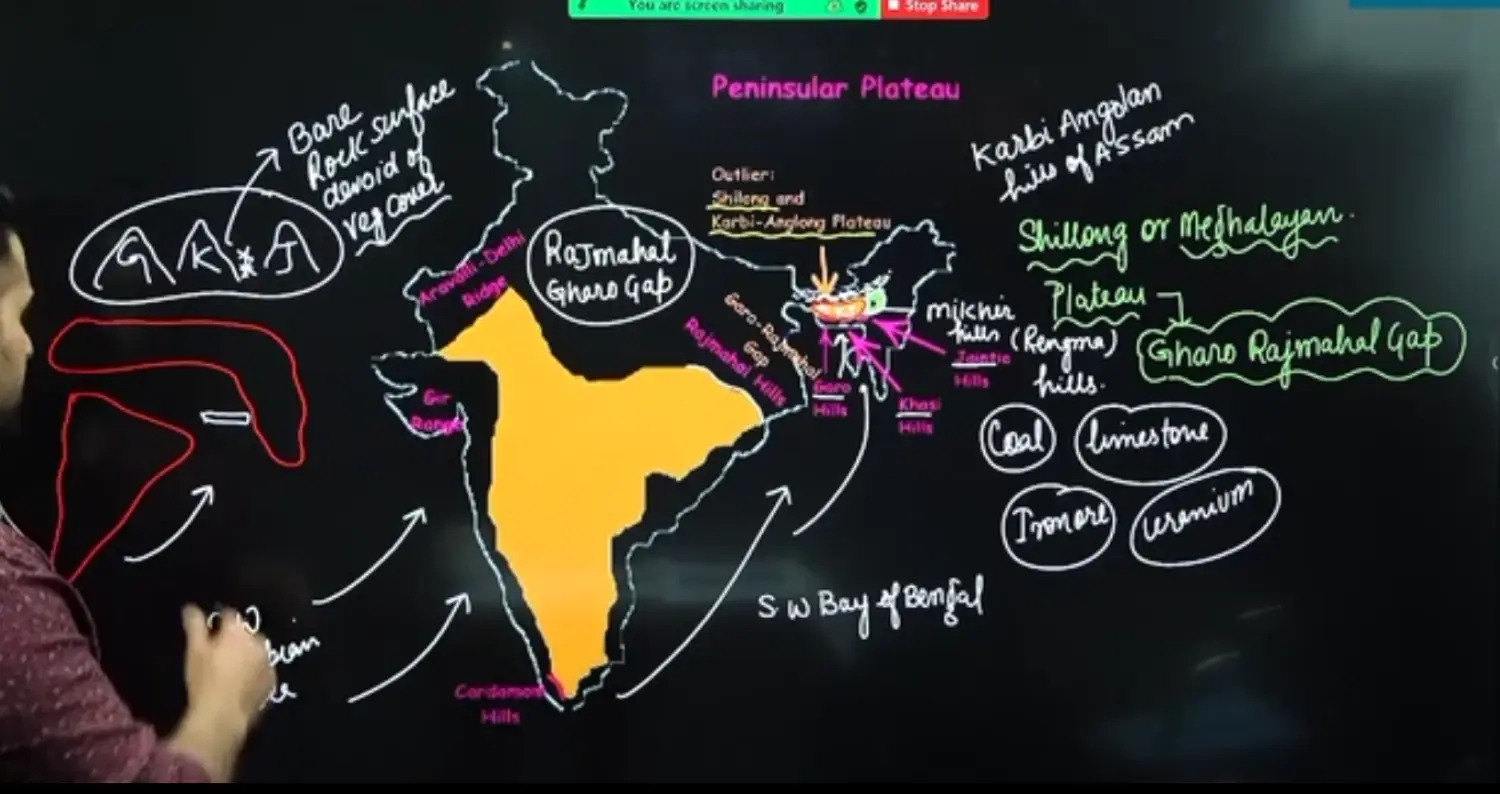 You are screen sharing
Stop Share
Peninsular Plateau
Bare
Rock surface
devoid of
veg cover
G K J
Karbi Angolan
hills of Assam
Outlier:
Shilong and
Karbi-Anglong Plateau
Shillong or Meghalayan.
Plateau
Gharo Rajmahal Gap
Rajmahal
Gharo Gap
Aravalli-Delhi
Ridge
Garo-Rajmahal
Gap
Rajmahal Hills
Mikhir
hills (Rengma)
hills.
Jaintia
Hills
Garo
Hills
Khasi
Hills
Gir
Range
Coal
limestone
Iron ore
Uranium
S W Bay of Bengal
W
bian
Cardamom
Hills